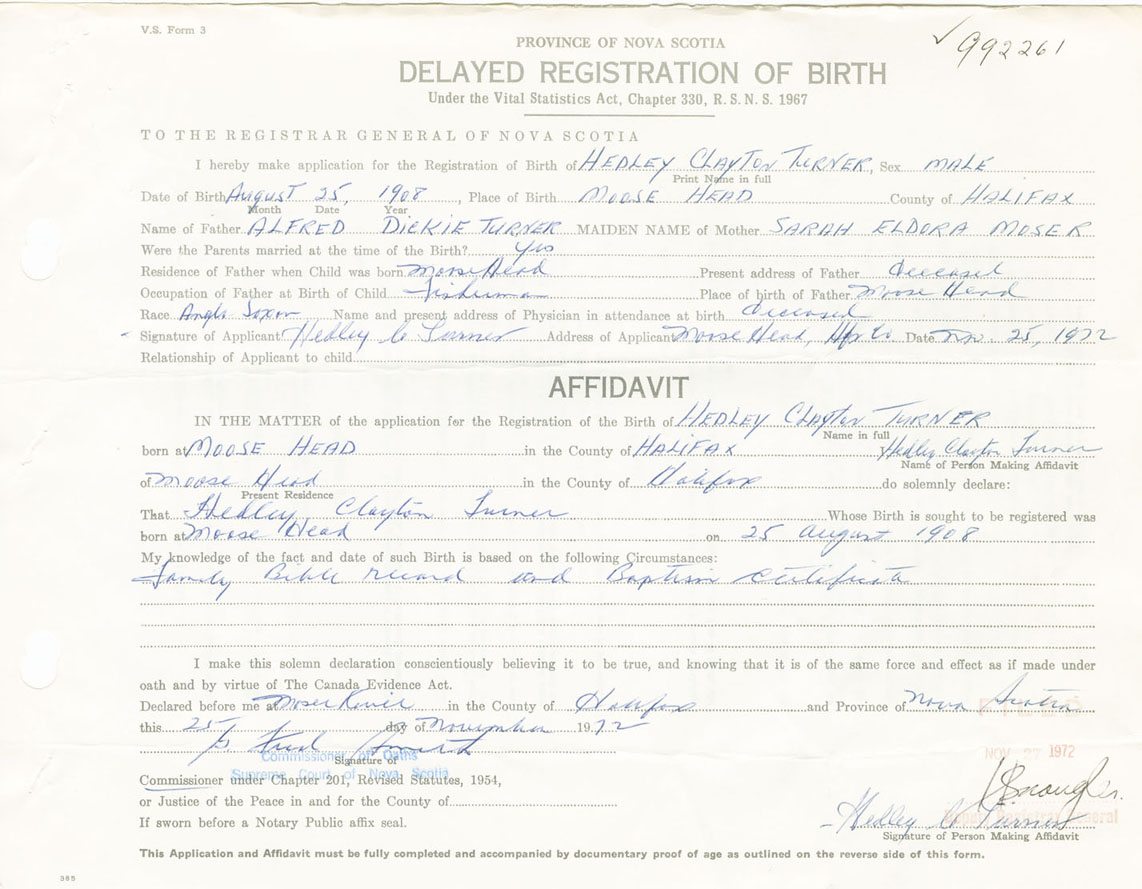 V.S. Form 3
992261
PROVINCE OF NOVA SCOTIA
DELAYED REGISTRATION OF BIRTH
Under the Vital Statistics Act, Chapter 330, R. S. N. S. 1967
TO THE REGISTRAR GENERAL OF NOVA SCOTIA
I hereby make application for the Registration of Birth of HEDLEY CLAYTON TURNER, Sex MALE
Print Name in full
Date of Birth August 25, 1908, Place of Birth MOOSE HEAD County of HALIFAX
Month Date Year
Name of Father ALFRED DICKIE TURNER MAIDEN NAME of Mother SARAH ELDORA MOSER
Were the Parents married at the time of the Birth? Yes
Residence of Father when Child was born Moose Head Present address of Father deceased
Occupation of Father at Birth of Child Fisherman Place of birth of Father Moose Head
Race Anglo Saxon Name and present address of Physician in attendance at birth deceased
Signature of Applicant Hedley C Turner Address of Applicant Moose Head, Hfx Co Date Nov. 25, 1972
Relationship of Applicant to child
AFFIDAVIT
IN THE MATTER of the application for the Registration of the Birth of HEDLEY CLAYTON TURNER
Name in full
born at MOOSE HEAD in the County of HALIFAX Hedley Clayton Turner
Name of Person Making Affidavit
of Moose Head in the County of Halifax do solemnly declare:
Present Residence
That Hedley Clayton Turner Whose Birth is sought to be registered was
born at Moose Head on 25 August 1908
My knowledge of the fact and date of such Birth is based on the following Circumstances:
Family Bible record and Baptism certificate
I make this solemn declaration conscientiously believing it to be true, and knowing that it is of the same force and effect as if made under
oath and by virtue of The Canada Evidence Act.
Declared before me at Moser River in the County of Halifax and Province of Nova Scotia
this 25 day of November 1972
Fred Smith
Commissioner of Oaths
Signature of
Supreme Court of Nova Scotia
NOV 27 1972
Commissioner under Chapter 201, Revised Statutes, 1954,
or Justice of the Peace in and for the County of
If sworn before a Notary Public affix seal.
Hedley C Turner
Signature of Person Making Affidavit
This Application and Affidavit must be fully completed and accompanied by documentary proof of age as outlined on the reverse side of this form.
385